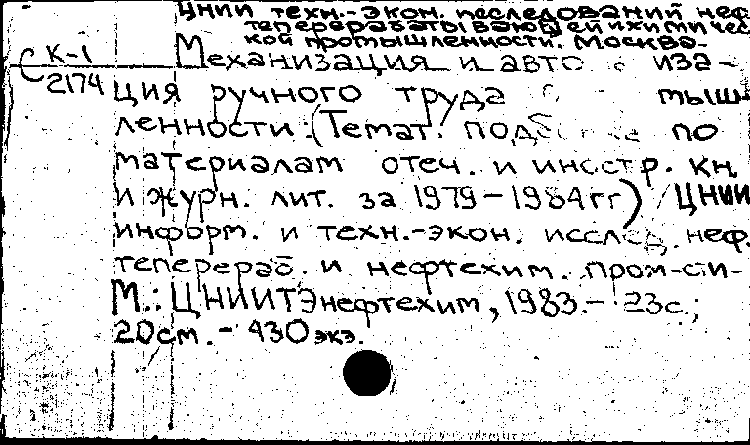 ЦНИИ техн.-экон. исследований неф
теперерабатывающей и химичес
кой промышленности. Москва.
К-1
С
2174
Механизация и авто иза-
ция ручного труда мыш-
ленности: (Темат. по
материалам отеч. и иностр. кн.
и журн. лит. за 1979-1984гг) / ЦНИИ
информ. и техн.-экон. исслед. неф.
теперераб. и нефтехим. пром-сти-
М.: ЦНИИТЭнефтехим, 1983.- 23с.;
20см. - 430экз.